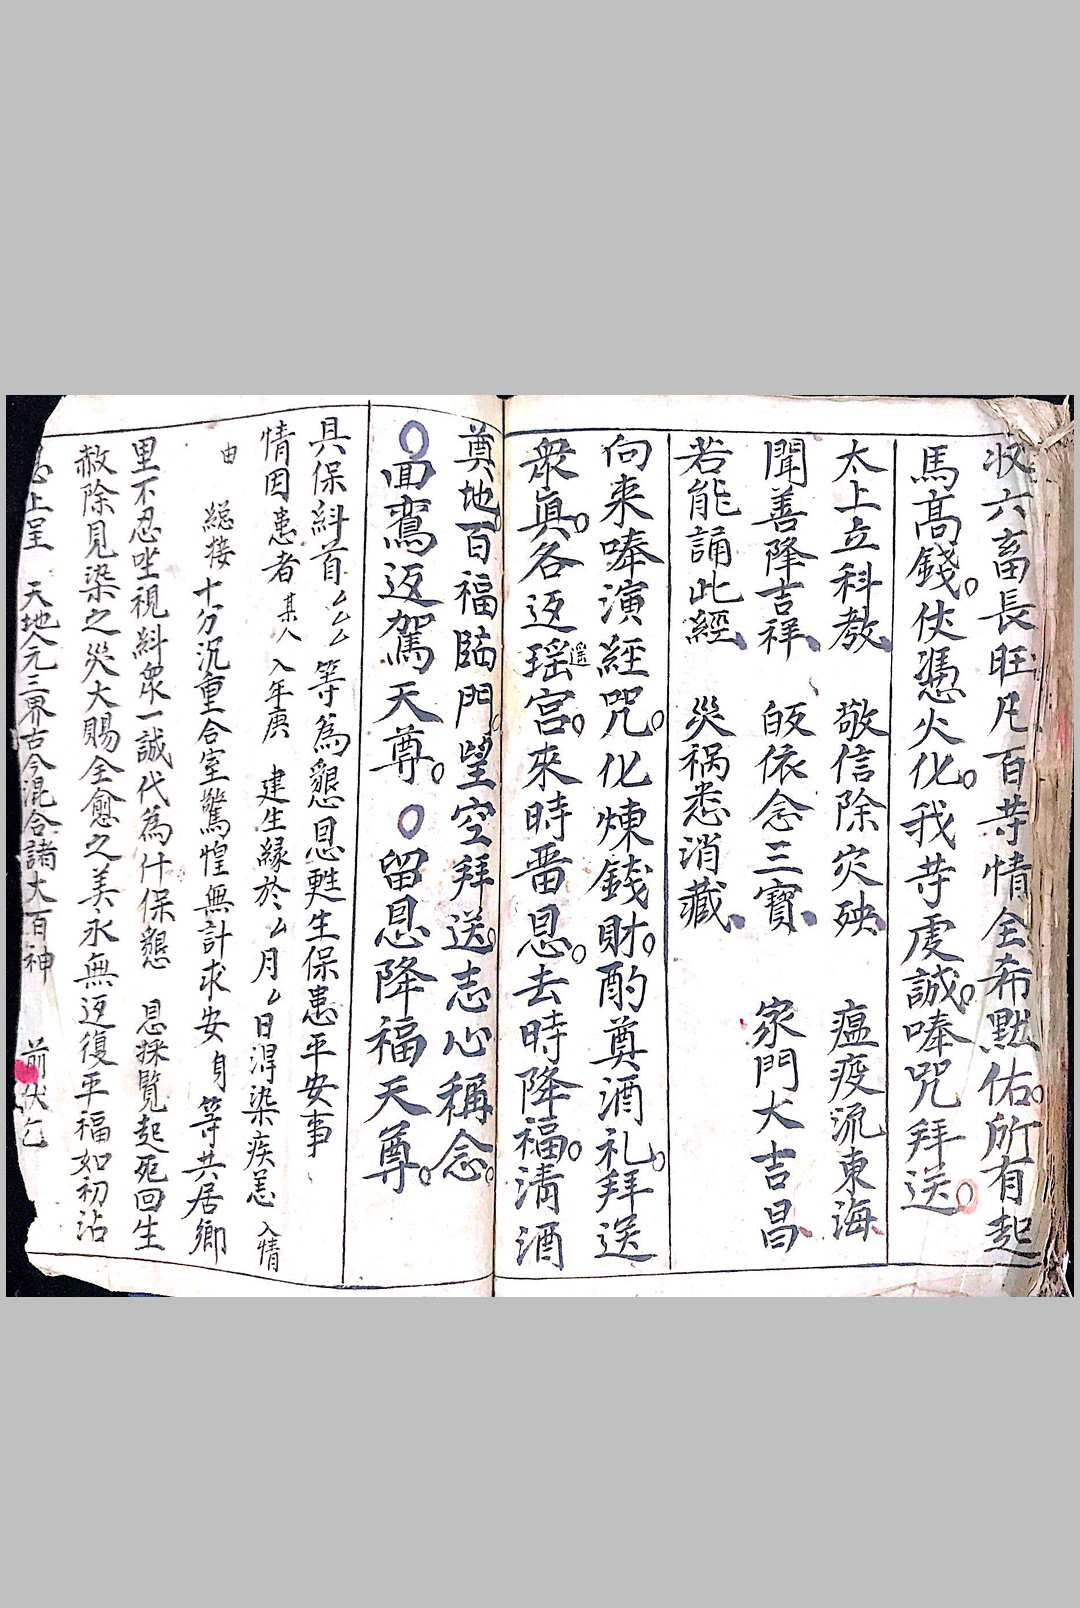 収六畜長旺凡百䓁情全希默佑。所有起
馬髙錢。仗憑火化。我䓁虔誠。唪咒拜送。
太上立科教、 敬信除灾殃、 瘟疫流東海、
聞善降吉祥、 皈依念三寶、 家門大吉昌、
若能誦此經、 災禍悉消藏、
向来唪演經咒。化煉錢財。酌奠酒礼。拜送
衆真。各返瑶遥宫。來時畱恩。去時降福。清酒
奠地。百福臨門。望空拜送。志心稱念。
○回鸞返駕天尊。○留恩降福天尊。
具保糾首厶厶等為懇恩甦生保患平安事
情因患者某人 入年庚 建生縁於厶月厶日淂染疾恙 入情
由 緫接十分沉重合室驚惶無計求安身等共居鄉
里不忍坐視糾衆一誠代為什保懇 恩採覧起死回生
赦除見染之災大賜全愈之美永無返復平福如初沾
上呈 天地人元三界古今混合諸大百神 前伏乞